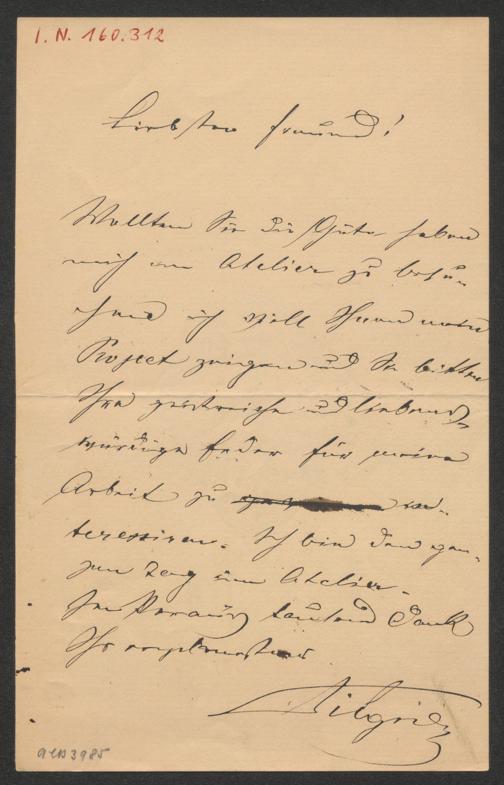 I. N. 160.312
Liebster Freund!
Wollten Sie die Güte haben
mich im Atelier zu besu-
chen ich will Ihnen mein
Project zeigen und Sie bitten
Ihre geistreiche und liebens-
würdige Feder für meine
Arbeit zu in-
teressiren. Ich bin den gan-
zen Tag im Atelier.
Im Voraus tausend Dank
Ihr ergebenster
Tilgner